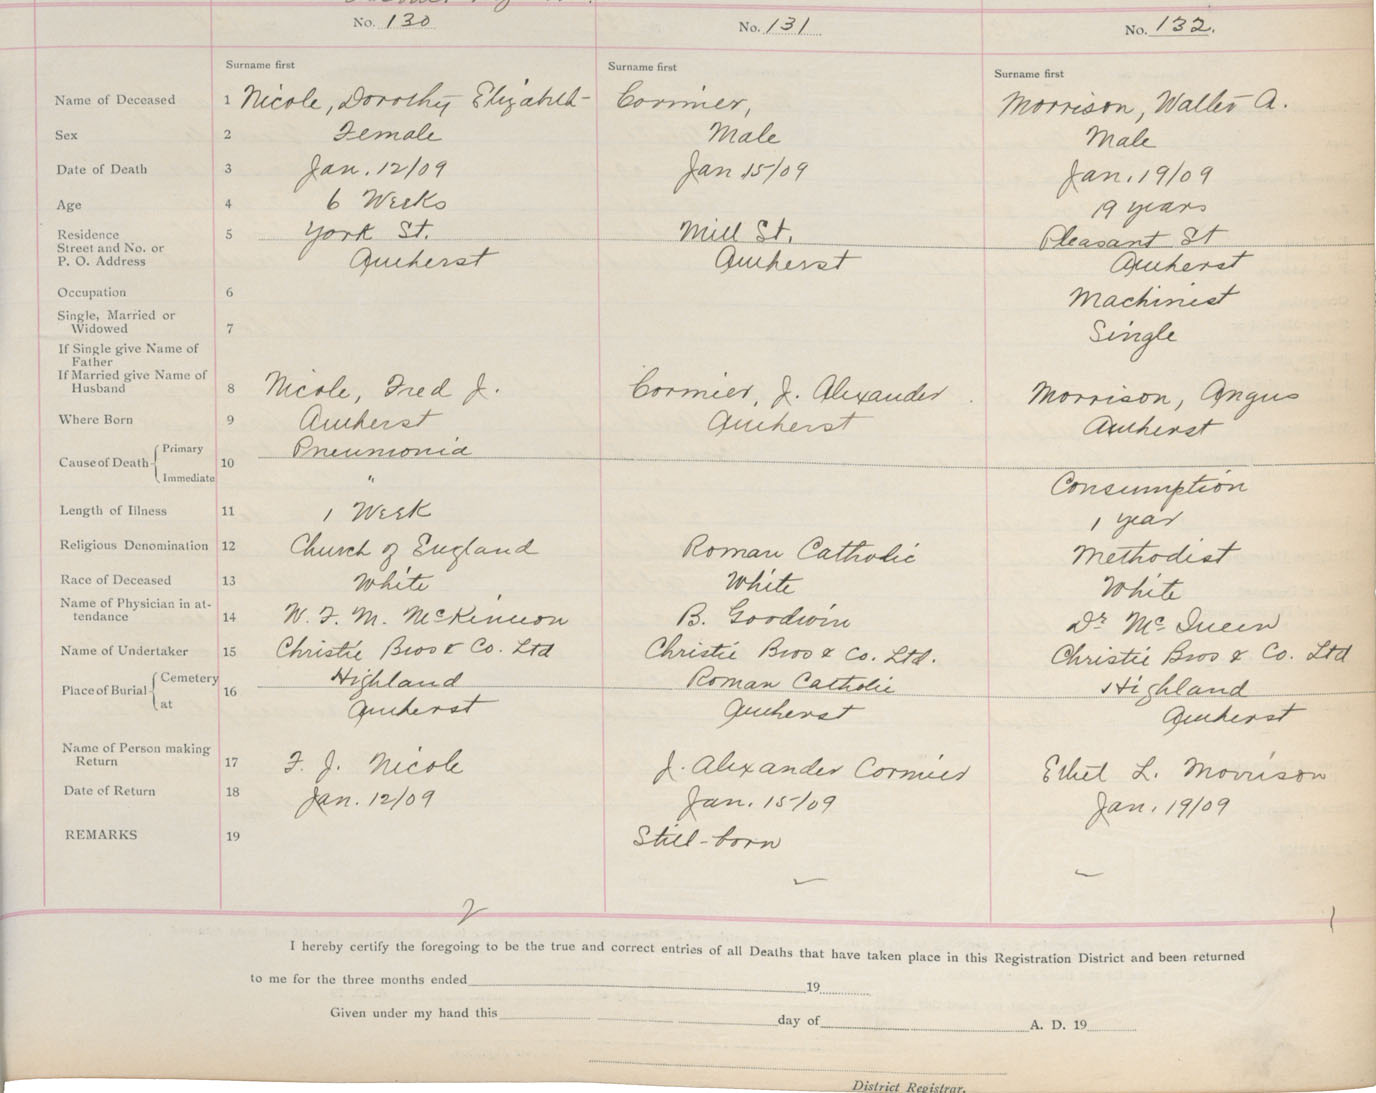 No. 130 No. 131 No. 132.
Surname first Surname first Surname first
Name of Deceased 1 Nicole, Dorothy Elizabeth- Cormier, Morrison, Walter A.
Sex 2 Female Male Male
Date of Death 3 Jan. 12/09 Jan 15/09 Jan. 19/09
Age 4 6 Weeks 19 years
Residence 5 York St. Mill St. Pleasant St
Street and No. or
P. O. Address Amherst Amherst Amherst
Occupation 6 Machinist
Single, Married or
Widowed 7 Single
If Single give Name of
Father
If Married give Name of
Husband 8 Nicole, Fred J. Cormier, J. Alexander Morrison, Angus
Where Born 9 Amherst Amherst Amherst
Cause of Death Primary 10 Pneumonia
Immediate " Consumption
Length of Illness 11 1 Week 1 year
Religious Denomination 12 Church of England Roman Catholic Methodist
Race of Deceased 13 White White White
Name of Physician in at-
tendance 14 W. F. M. McKinnon B. Goodwin Dr McQueen
Name of Undertaker 15 Christie Bros & Co. Ltd Christie Bros & Co. Ltd. Christie Bros & Co. Ltd
Place of Burial Cemetery 16 Highland Roman Catholic Highland
at Amherst Amherst Amherst
Name of Person making
Return 17 F. J. Nicole J. Alexander Cormier Ethel L. Morrison
Date of Return 18 Jan. 12/09 Jan. 15/09 Jan. 19/09
REMARKS 19 Still-born
2 1
I hereby certify the foregoing to be the true and correct entries of all Deaths that have taken place in this Registration District and been returned
to me for the three months ended 19
Given under my hand this day of A. D. 19
District Registrar.